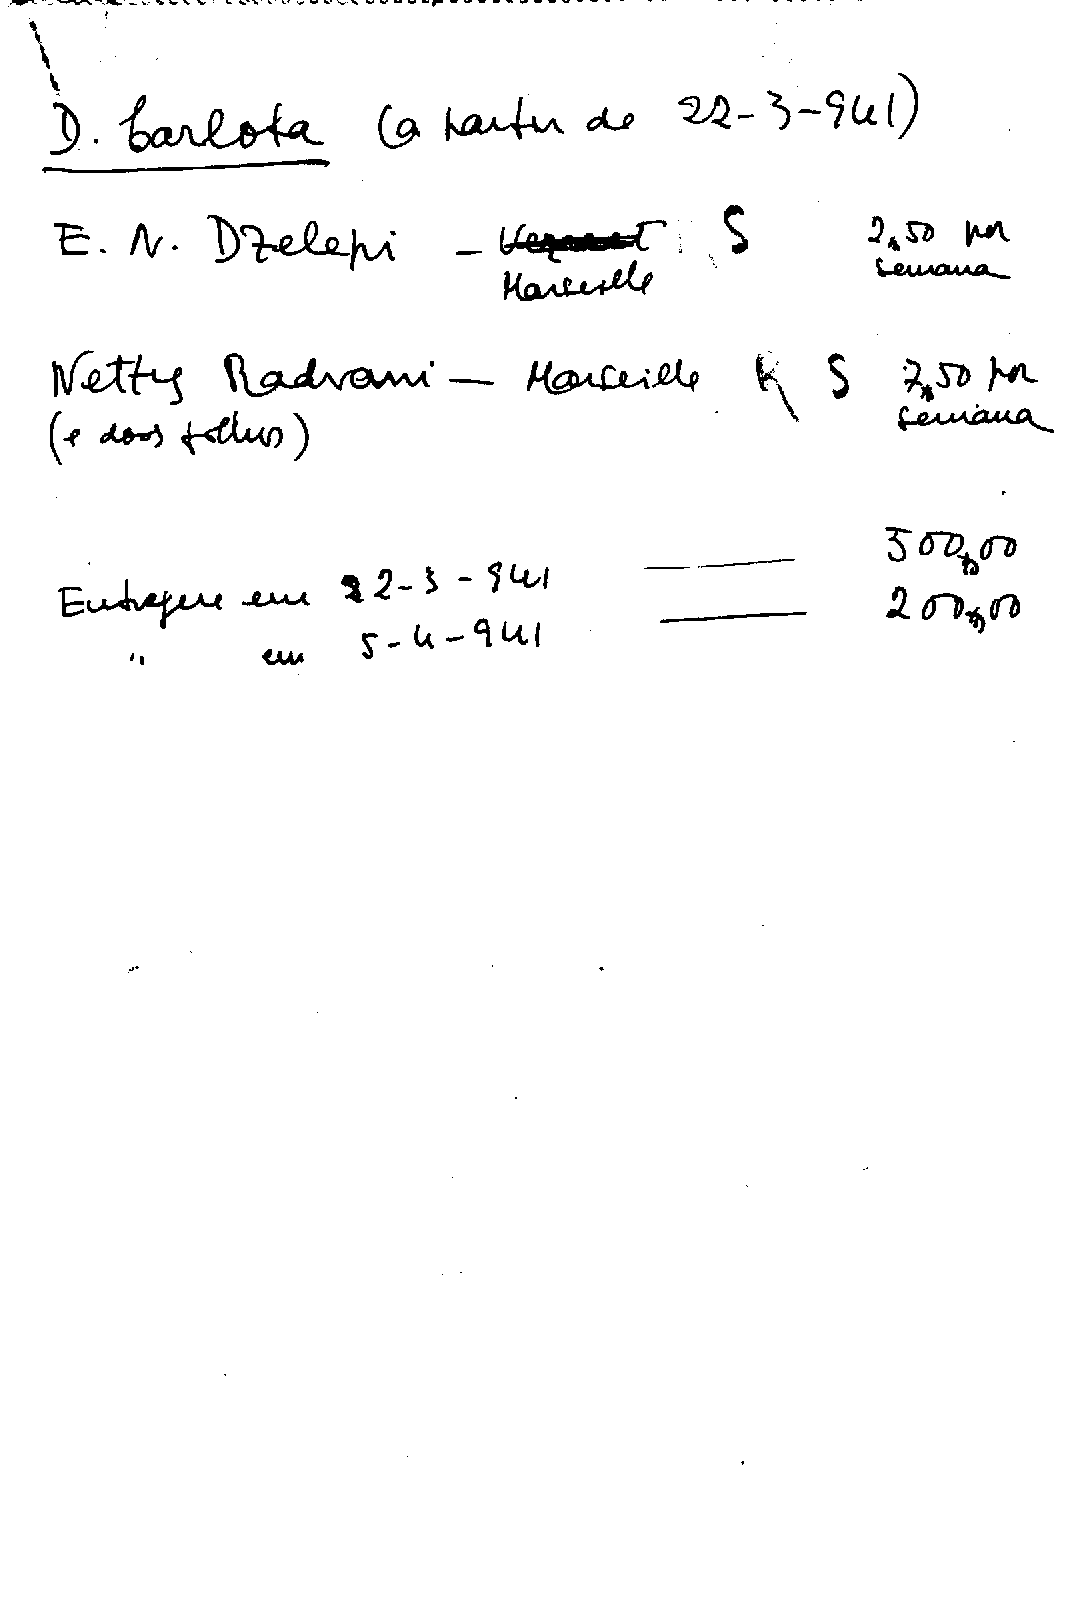 D. Carlota (a partir de 22-3-941)
E. N. Dzelepi - Vernet S 2,50 por
Marseille semana
Nettys Radvani - Marseille K S 7,50 por
(e dois filhos) semana
500,00
Entreguei em 22-3-941 —
200,00
" em 5-4-941 —